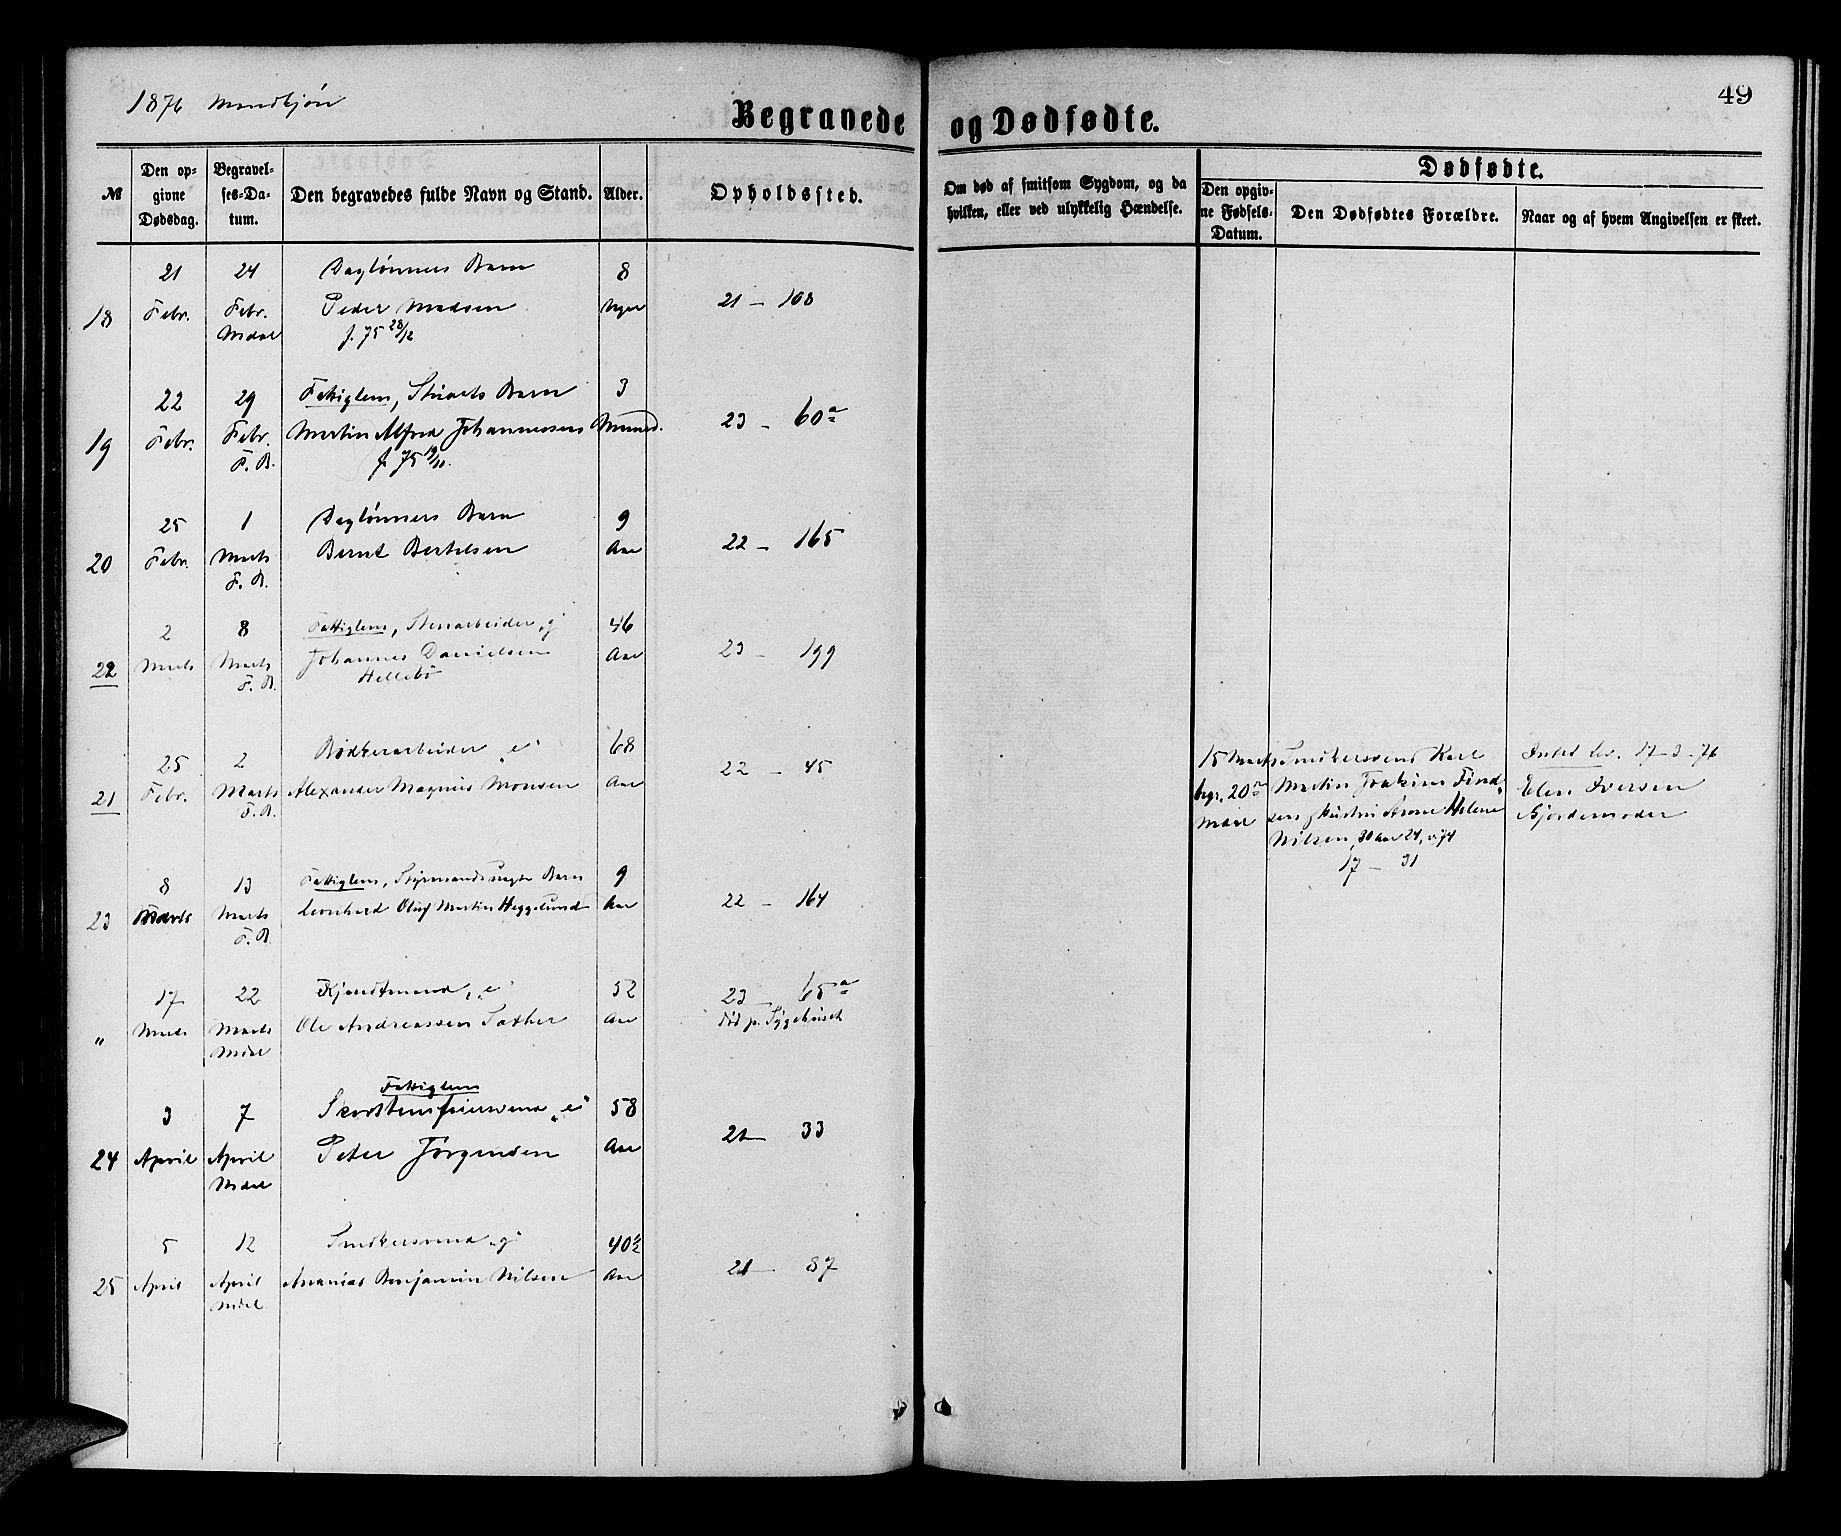 1876 Mandkjön
49
Begravede og Dødfødte.
№
Den opgivne Dødsdag.
Begravelses-Datum.
Den begravedes fulde Navn og Stand.
Alder.
Opholdssted.
Om død af smitsom Sygdom, og da hvilken, eller ved ulykkelig Hændelse.
Dødfødte.
Den opgivne Fødsels-Datum.
Den Dødfødtes Forældre.
Naar og af hvem Angivelsen er skeet.
21 24 Daglönners Barn 8
18 Febr. Febr. Peder Madsen Uger 21 - 108
Mdal f. 75 28/12
22 29 Fattiglem, Stuarts Barn 3
19 Febr. Febr. Martin Alfred Johannessen Maaned. 23 - 60a
F. B. f. 75 19/11.
25 1 Daglönners Barn 9
20 Febr. Marts Bernt Bertelsen Aar 22 - 165
F. B.
2 8 Fattiglem, Stenarbeider, g 46
22 Marts Marts Johannes Danielsen Aar 23 - 199
F. B. Hellebö
25 2 Bödkerarbeider "e" 68
21 Febr. Marts Alexander Magnus Monsen Aar 22 - 45
F. B.
15 Marts Smedkersvend Karl
begr. 20de Martin Joakim
Mdal Hustru Anne Helene
Nilsen, 30 aar
17 - 31
Intet lev. 17-3-76
Elen Iversen
Gjordemoder
8 13 Fattiglem, Styrmands uægte Barn 9
23 Marts Marts Leonhard Oluf Martin Heggelund Aar 22 - 164
F. B.
17 22 "e" 52
" Marts Marts Ole Andreassen Sæther Aar 23 - 65a
Mdal död p. Sygehuset
Fattiglem
3 7 Skorstensfeiersvend "e" 58
24 April April Peter Jörgensen Aar 21 - 33
Mdal
5 12 Snedkersvend "g" 40½
25 April April Ananias Benjamin Nilsen Aar 21 - 87
Mdal